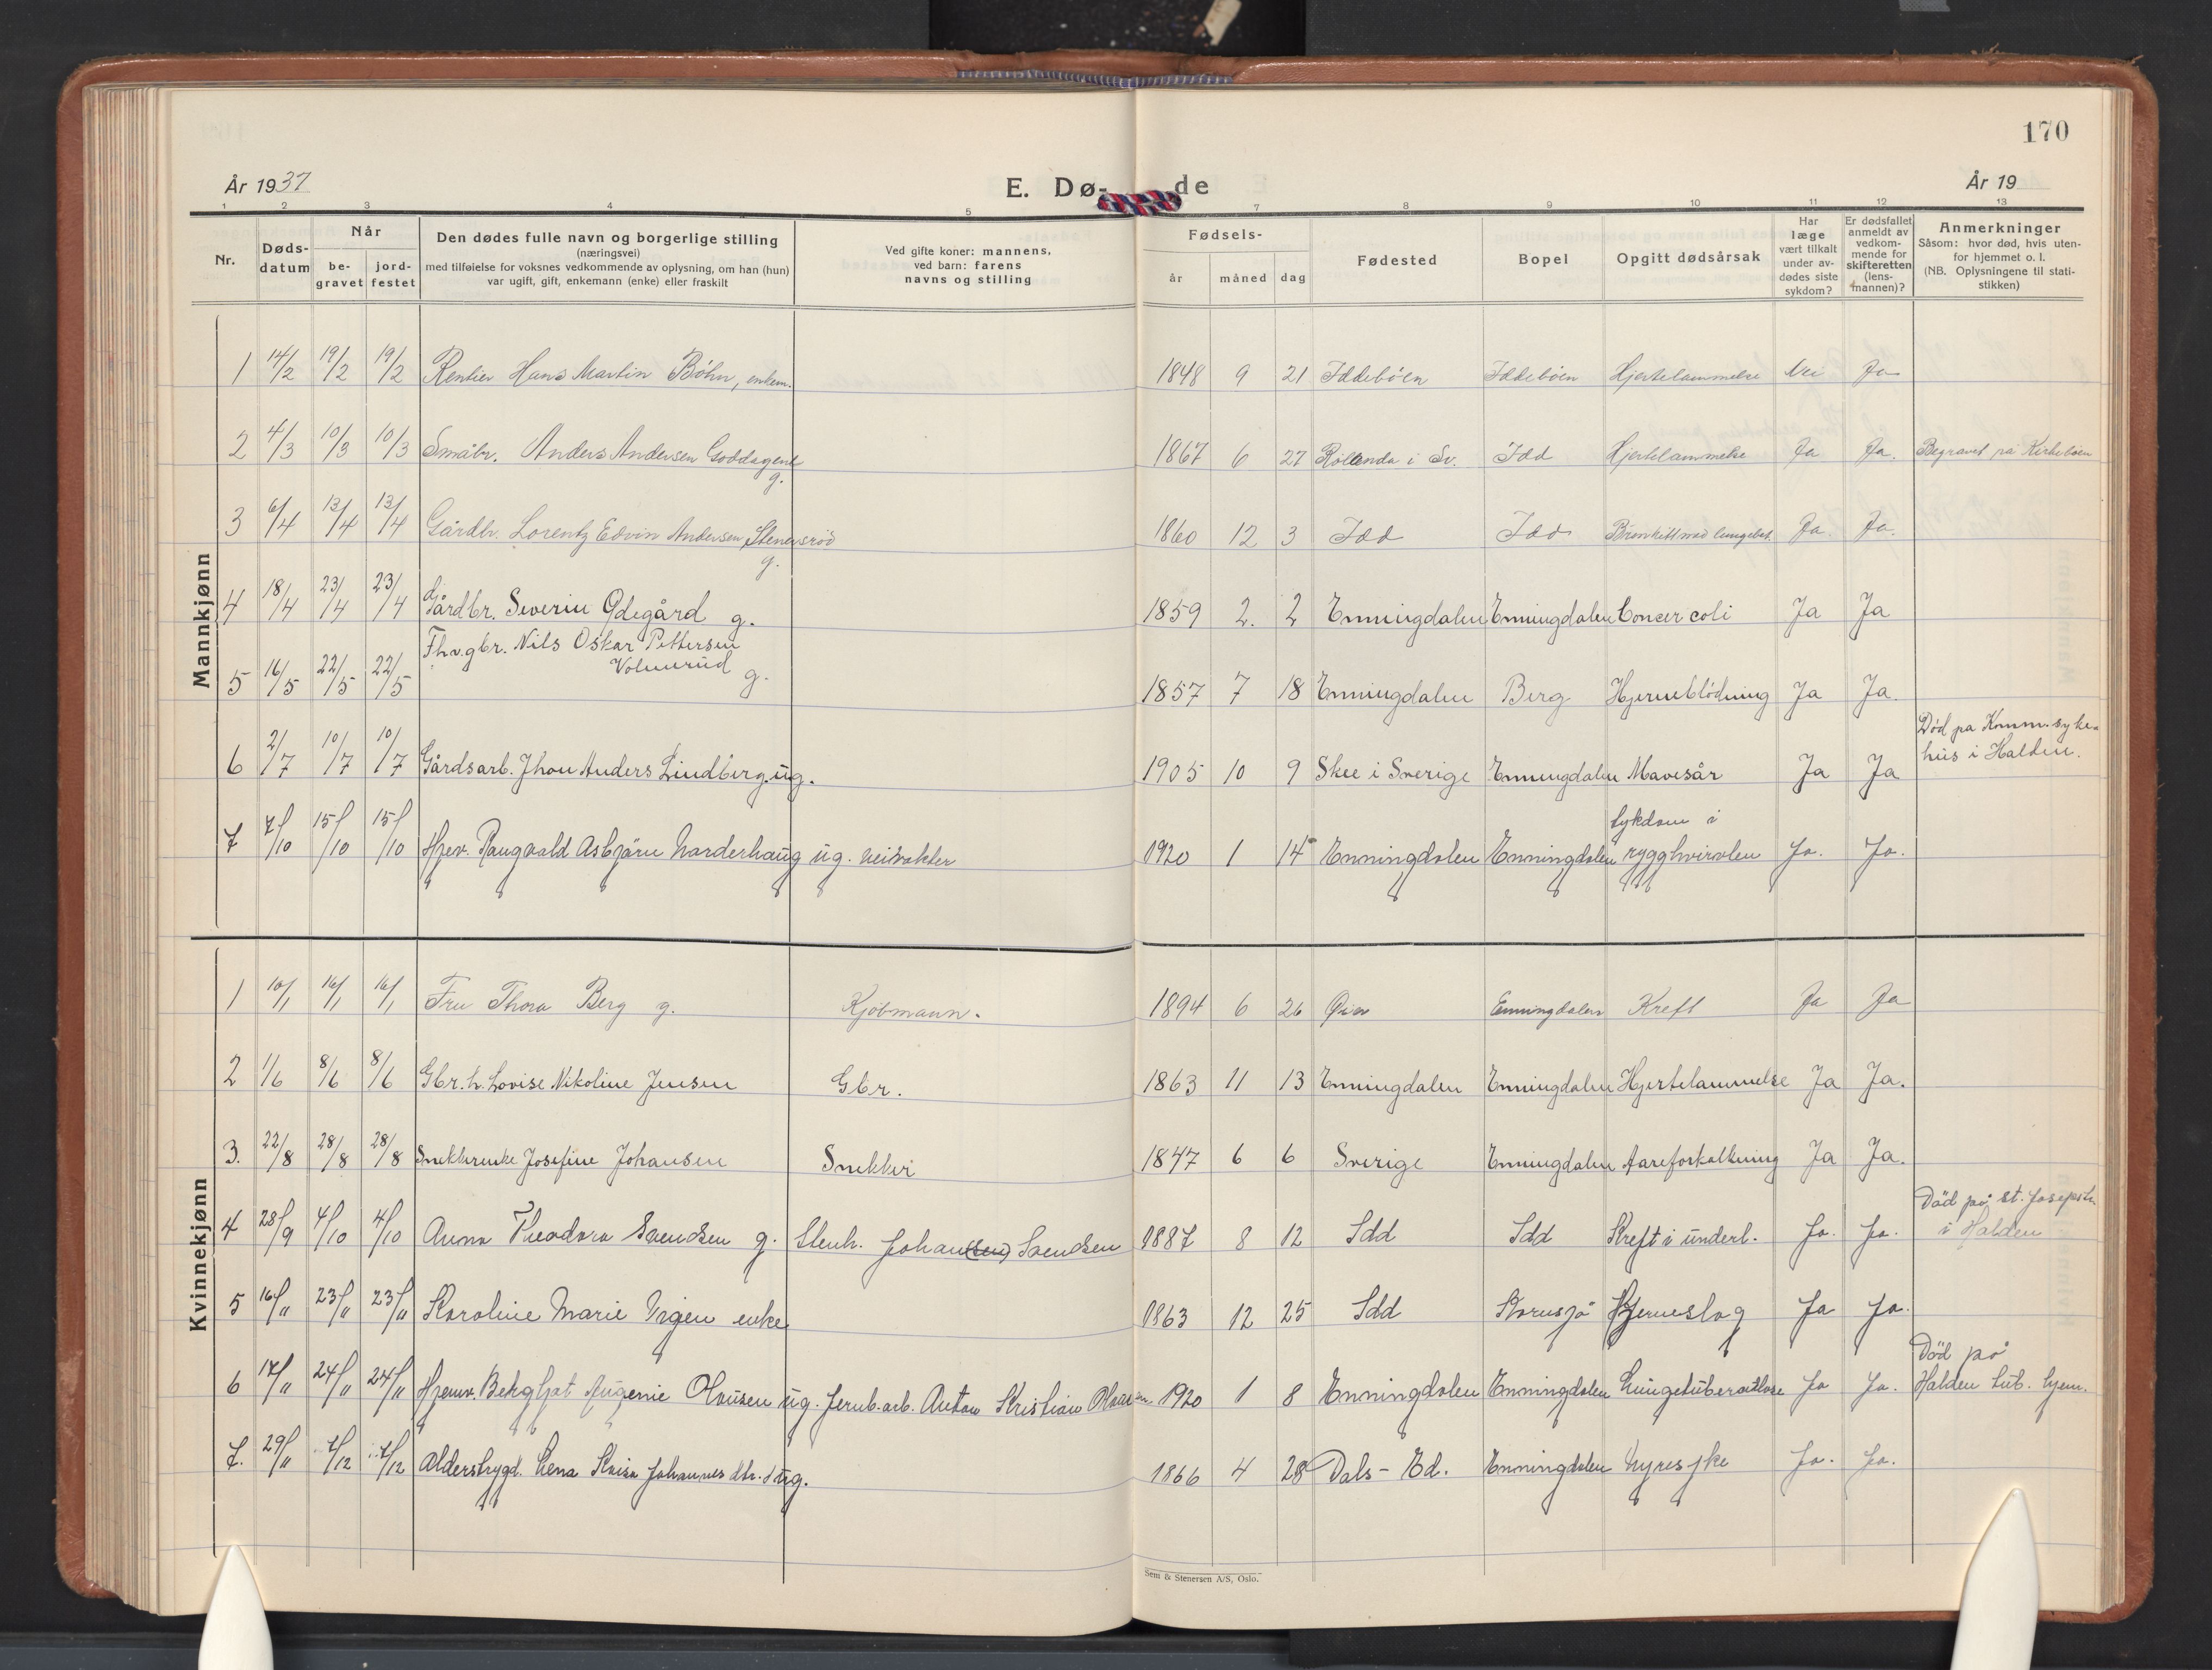 170
År 1937
E. Dø- de
År 19
1 2 3 4 5 7 8 9 10 11 12 13
Nr.
Døds-
datum
Når
be-
gravet
jord-
festet
Den dødes fulle navn og borgerlige stilling
(næringsvei)
med tilføielse for voksnes vedkommende av oplysning, om han (hun)
var ugift, gift, enkemann (enke) eller fraskilt
Ved gifte koner: mannens,
ved barn: farens
navns og stilling
Fødsels-
år måned dag
Fødested
Bopel
Opgitt dødsårsak
Har
læge
vært tilkalt
under av-
dødes siste
sykdom?
Er dødsfallet
anmeldt av
vedkom-
mende for
skifteretten
(lens-
mannen)?
Anmerkninger
Såsom: hvor død, hvis uten-
for hjemmet o. l.
(NB. Oplysningene til stati-
stikken)
Mannkjønn
1 14/2 19/2 19/2 Rentier Hans Martin Böhn, enkem. 1848 9 21 Iddeböen Iddeböen Hjertelammelse Nei Ja
2 4/3 10/3 10/3 Småbr. Anders Andersen Goddagene g. 1867 6 27 Rölanda i Sv. Idd Hjertelammelse Ja Ja. Begravet på Kirkeböen
3 6/4 13/4 13/4 Gårdbr. Lorentz Edvin Andersen, Stenersröd g. 1860 12 3 Idd Idd Bronkitt med lungebet. Ja. Ja.
4 18/4 23/4 23/4 Gårdbr. Severin Ødegård g. 1859 2. 2 Enningdalen Enningdalen Cancer coli Ja Ja
5 16/5 22/5 22/5 Fhv. gbr. Nils Oskar Pettersen
Volnerud g. 1857 7 18 Enningdalen Berg Hjerneblödning Ja Ja.
6 2/7 10/7 10/7 Gårdsarb. Jhon Anders Lindberg ug. 1905 10 9 Skee i Sverige Enningdalen Mavesår Ja Ja Död på Komm. syke-
hus i Halden.
7 7/10 15/10 15/10 Hjev. Raugvald Asbjörn Narderhaug ug. veivokter 1920 1 14 Enningdalen Enningdalen Sykdom i
rygghvirvlen Ja. Ja.
Kvinnekjønn
1 10/1 16/1 16/1 Fru Thora Berg g. Kjöbmann. 1894 6 26 Øien Enningdalen Kreft Ja Ja
2 1/6 8/6 8/6 Gbr. h. Lovise Nikoline Jensen Gbr. 1863 11 13 Enningdalen Enningdalen Hjertelammelse Ja Ja.
3. 22/8 28/8 28/8 Snekkerenke Josefine Johansen Snekker 1847 6 6 Sverige Enningdalen Aareforkalkning Ja Ja.
4 28/9 4/10 4/10 Anna Theodora Svendsen g. Stenh. Johan(sen) Svendsen 1887 8 12 Idd Idd Kreft i underl. Ja. Ja. Död på St. Josephs h.
i Halden
5 16/11 23/11 23/11 Karoline Marie Vigen enke 1863 12 25 Idd Kornsjö Hjerneslag Ja Ja.
6 17/11 24/11 24/11 Hjemv. Bergljot Augenie Olausen ug. Jernb. arb. Anton Kristian Olausen 1920 1 8 Enningdalen Enningdalen Lungetuberculose Ja Ja. Död på
Halden tub. hjem.
7. 29/11 7/12 7/12 Alderstrygd. Lena Kaisa Johannes dtr. ug. 1866 4 28 Dals-Ed. Enningdalen Nyresyke Ja. Ja.
Sem & Stenersen A/S, Oslo.